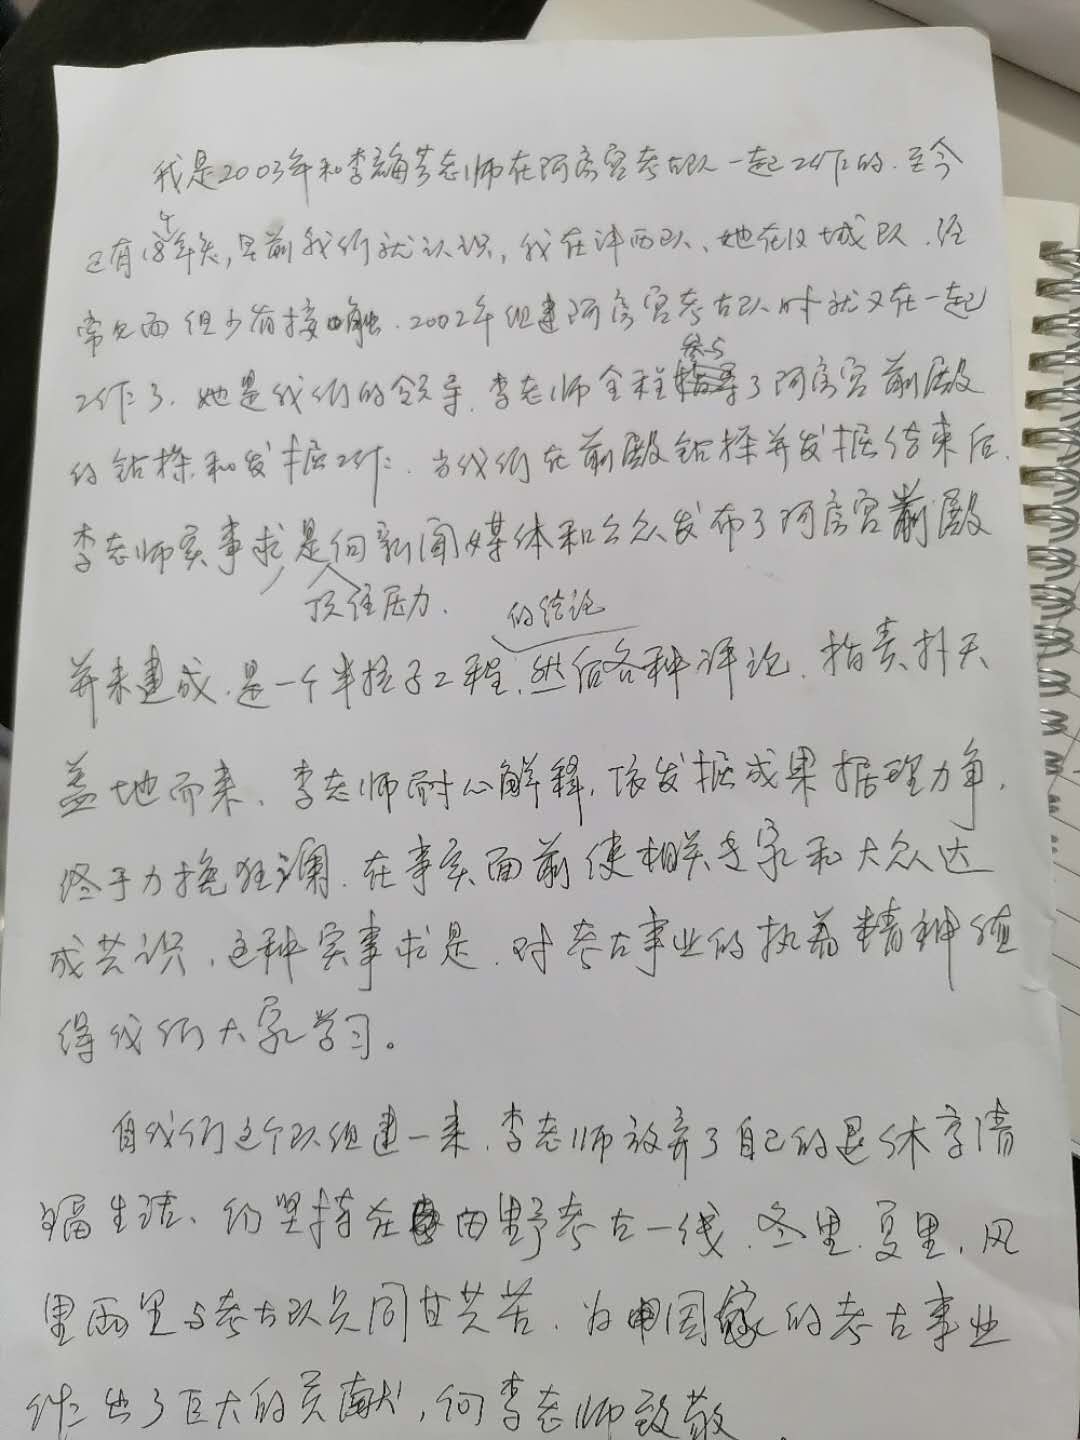 我是2003年和李毓芳老师在阿房宫考古队一起工作的.至今
已有18年矣,早前我们就认识,我在沣西队、她在汉城队.经
常见面但少有接触.2002年组建阿房宫考古队时就又在一起
参与
工作了.她是我们的领导.李老师全程了阿房宫前殿
的钻探和发掘工作.当我们在前殿钻探并发掘结束后.
李老师实事求是向新闻媒体和公众发布了阿房宫前殿
顶住压力. 的结论
并未建成.是一个半拉子工程.然后各种评论.指责扑天
盖地而来、李老师耐心解释,依发掘成果据理力争,
终于力挽狂澜.在事实面前使相关专家和大众达
成共识.这种实事求是.对考古事业的执着精神值
得我们大家学习。
自我们这个队组建一来.李老师放弃了自己的退休享清
福生活、仍坚持在田野考古一线.冬里.夏里,风
里雨里与考古队员同甘共苦.为国家的考古事业
作出了巨大的贡献,向李老师致敬.